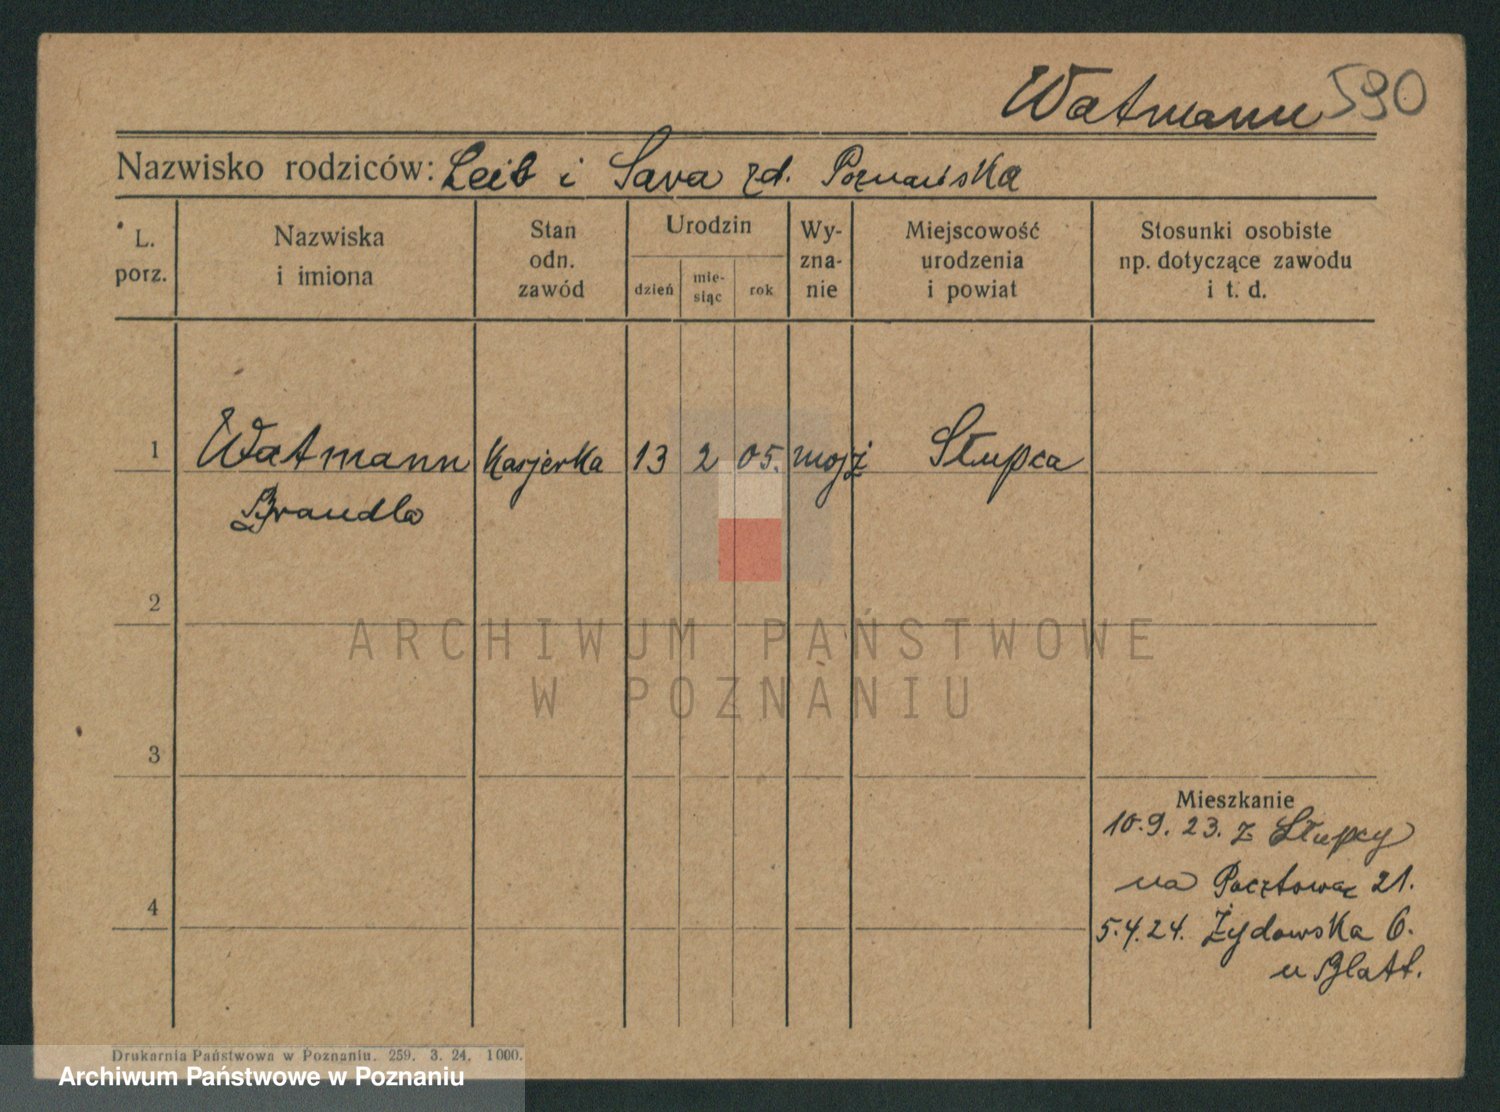 Watmann 590
Nazwisko rodziców: Leib i Sara zd. Poznańska
L. porz.
Nazwiska i imiona
Stan odn. zawód
Urodzin
dzień
mie-siąc
rok
Wy-zna-nie
Miejscowość urodzenia i powiat
Stosunki osobiste np. dotyczące zawodu i t. d.
1 Watmann Kasjerka 13 2 05. mojż Słupca
Brandla
2
ARCHIWUM PAŃSTWOWE
W POZNANIU
3
Mieszkanie
10.9.23. z Słupcy
na Pocztową 21.
4
5.4.24. Żydowska 6.
u Blatt.
Drukarnia Państwowa w Poznaniu. 259. 3. 24. 1000.
Archiwum Państwowe w Poznaniu